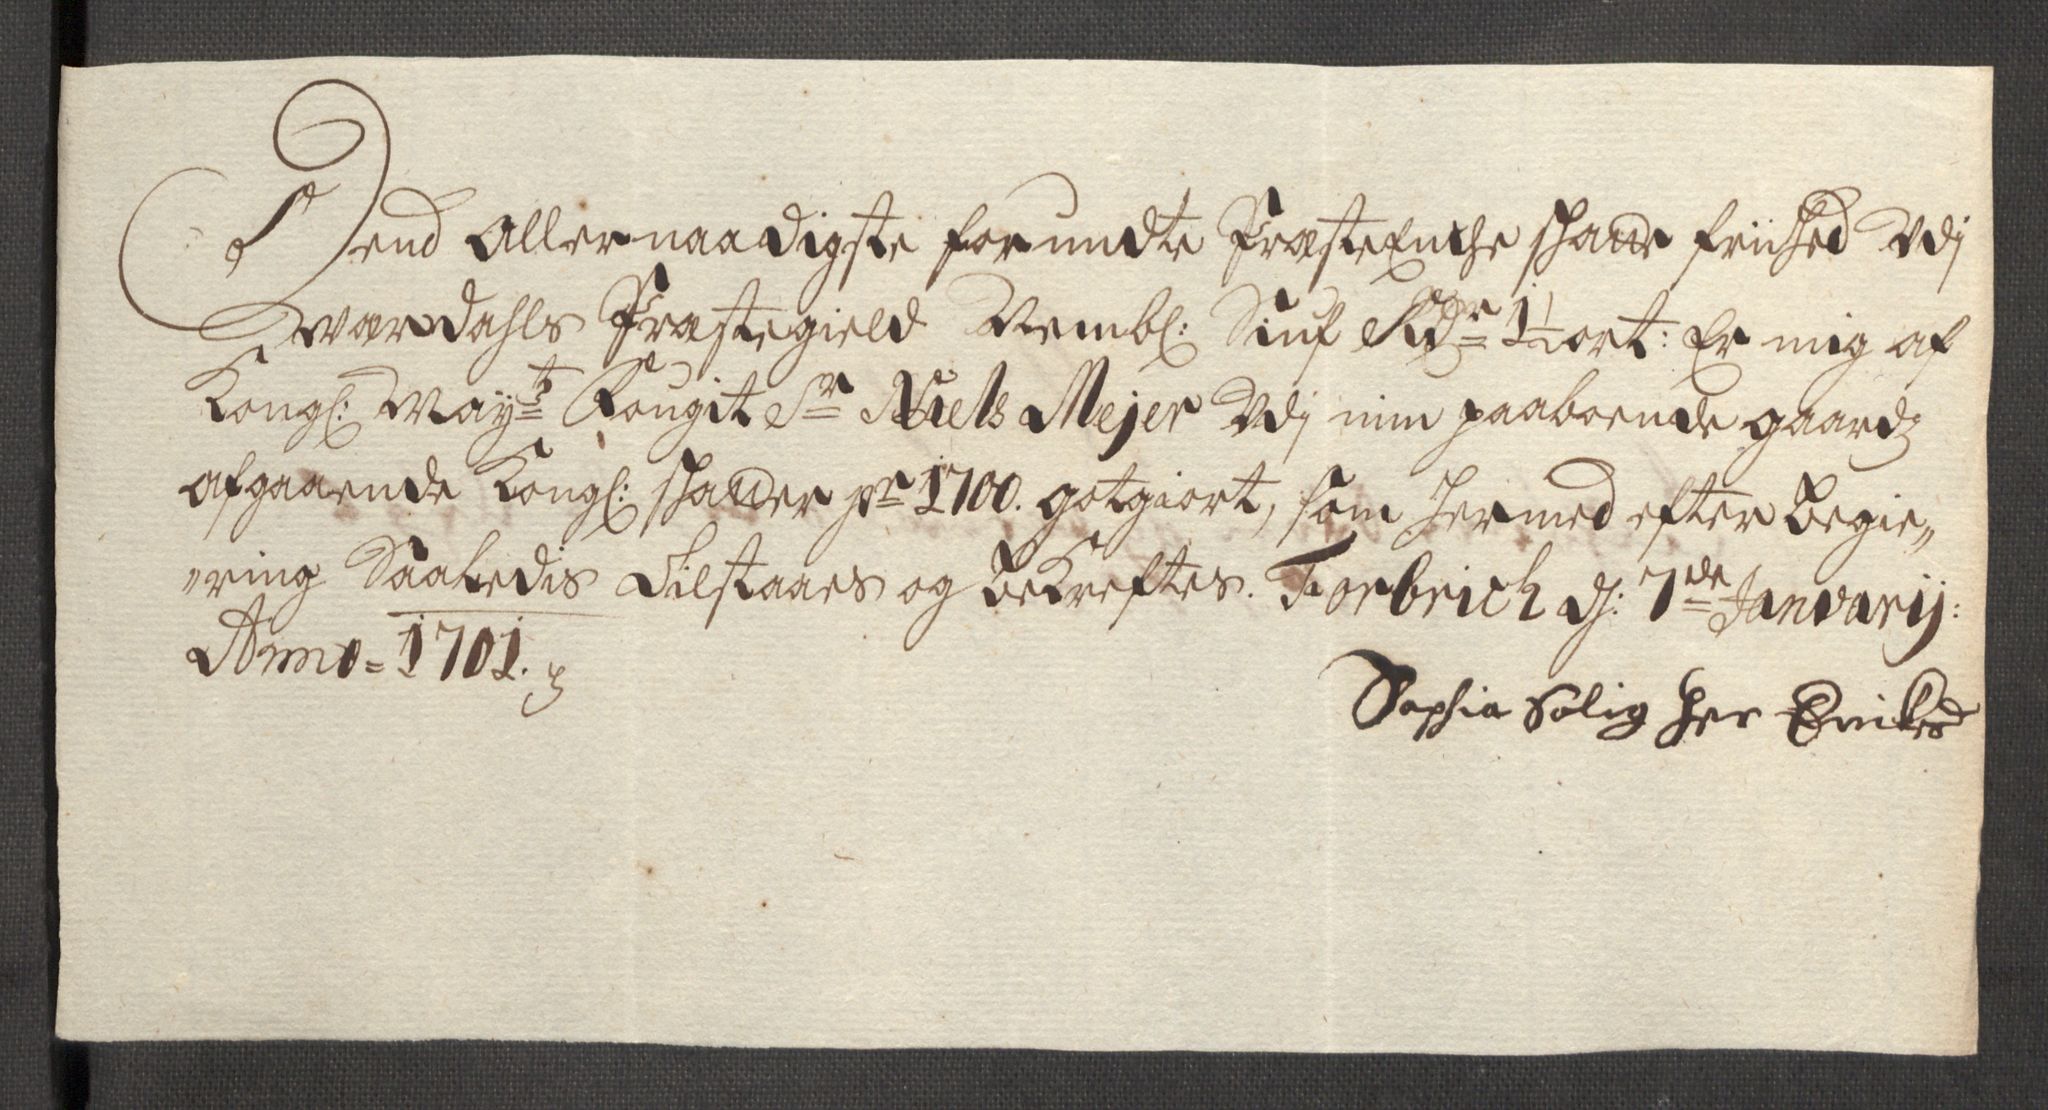 Dend Allernaadigste forundte Præsteenche schatte friihed Vdj
Wærdahls Præstegield Nembl: Siuf Rdr 1½ ort: Er mig af
Kongl: Maytz Fougit Sr Niels Mejer Vdj min paaboende gaardz
afgaaende Kongl: schatter pr 1700. gotgiort, som hermed efter begie„
„ring Saaledis Tilstaaes og bekreftes. Forbrich d: 7de Janvarij:
Anno = 1701.
Sophia Salig her Erikes